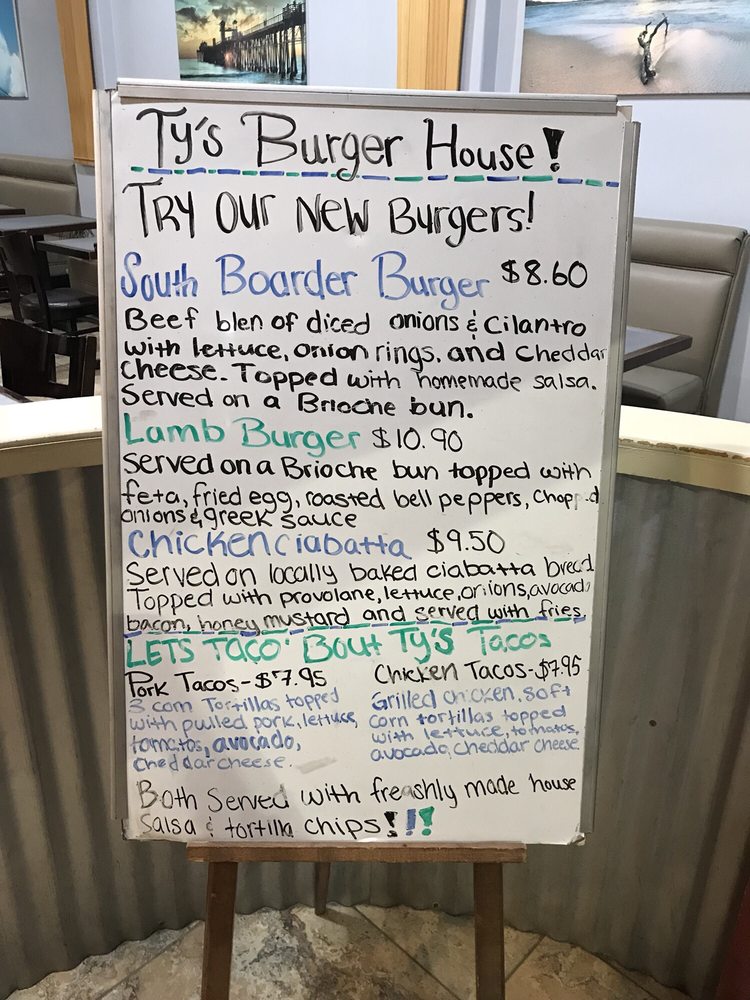 Ty's Burger House!
TRY Our New Burgers!
South Boarder Burger $8.60
Beef blen of diced onions & Cilantro
with lettuce, onion rings, and Cheddar
Cheese. Topped with homemade salsa.
Served on a Brioche bun.
Lamb Burger $10.90
Served on a Brioche bun topped with
feta, fried egg, roasted bell peppers,
onions & greek sauce
Chicken ciabatta $9.50
Served on locally baked ciabatta bread
Topped with provolane, lettuce, onions, avocado
bacon, honey mustard and served with fries.
LETS TACO' Bout TY'S Tacos
Pork Tacos - $7.95
3 corn Tortillas topped
with pulled pork, lettuce,
tomatos, avocado,
cheddar cheese.
Chicken Tacos - $7.95
Grilled chicken, soft
corn tortillas topped
with lettuce, tomatos,
avocado, cheddar cheese.
Both Served with freashly made house
Salsa & tortilla chips!!!